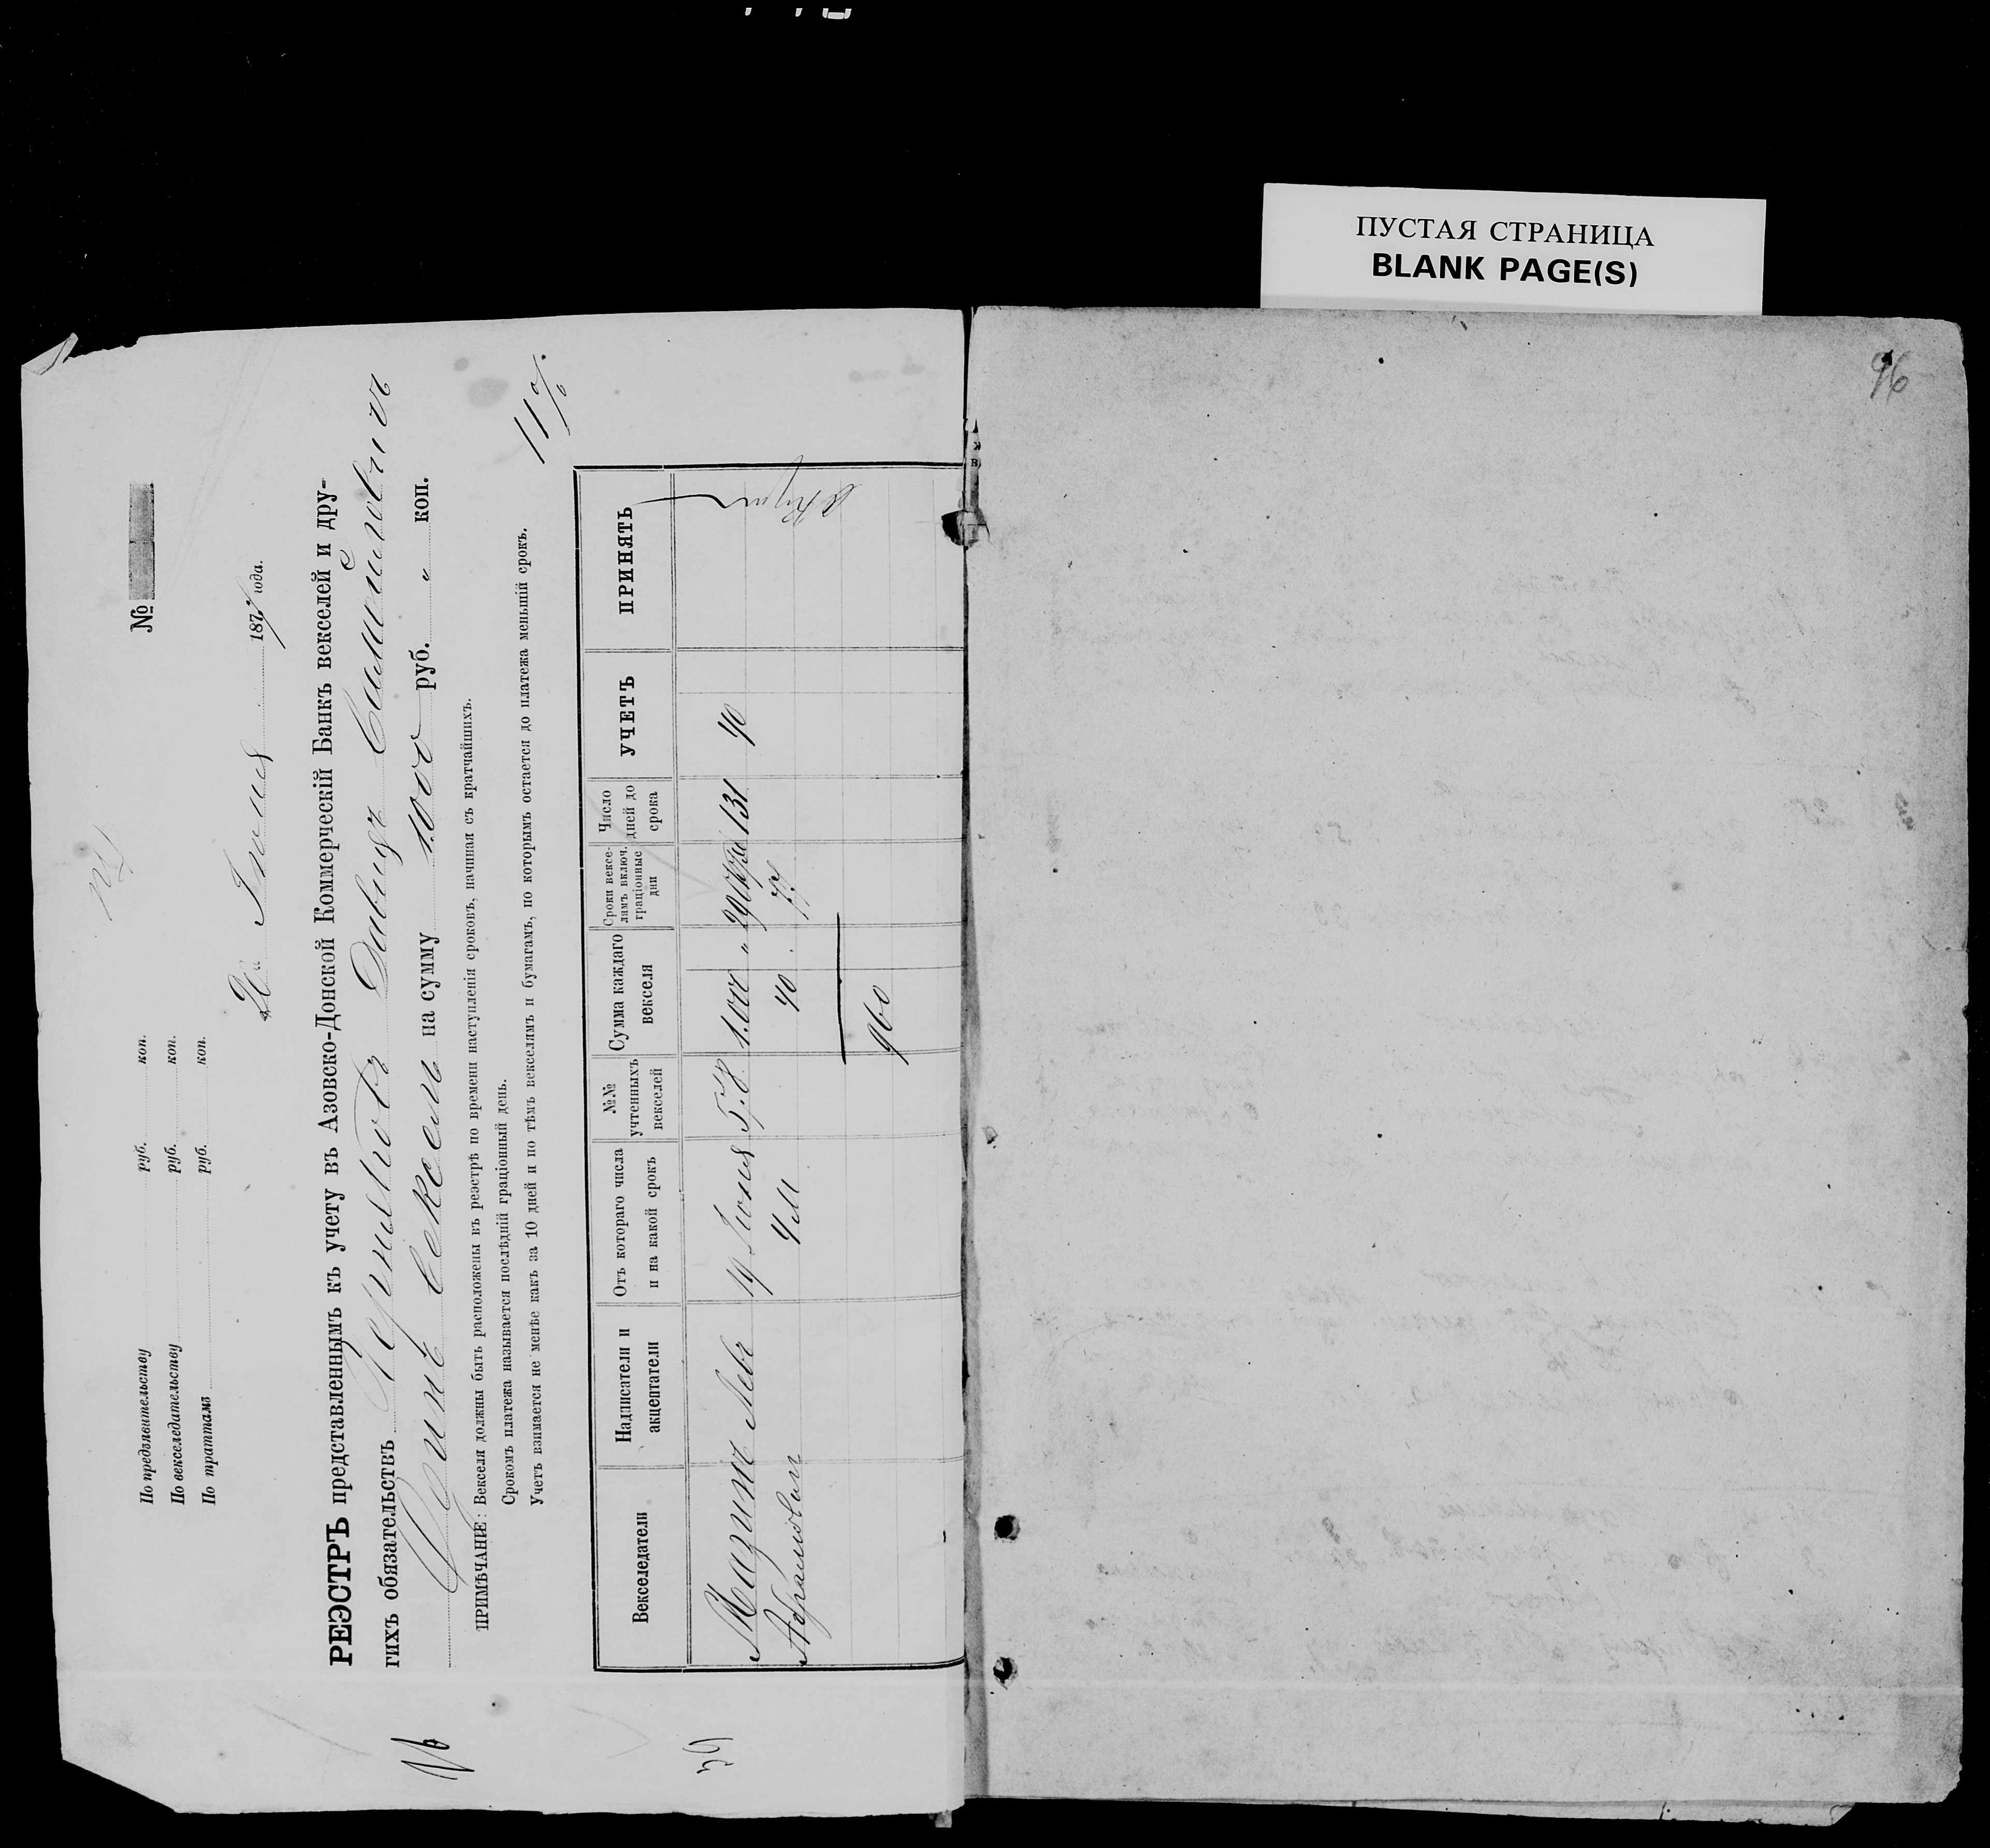 ПУСТАЯ СТРАНИЦА
BLANK PAGE(S)
96
№
По предъявительству руб. коп.
По векселедательству руб. коп.
По траттамъ руб. коп.
20 Іюня 1877 года.
РЕЭСТРЪ представленнымъ къ учету въ Азовско-Донской Коммерческій Банкъ векселей и дру-
гихъ обязательствъ Давидъ Самойловичъ
Одинъ вексель на сумму 1000 руб. „ коп.
ПРИМѢЧАНІЕ: Векселя должны быть расположены въ реэстрѣ по времени наступленія сроковъ, начиная съ кратчайшихъ.
Срокомъ платежа называется послѣдній граціонный день.
Учетъ взимается не менѣе какъ за 10 дней и по тѣмъ векселямъ и бумагамъ, по которымъ остается до платежа меньшій срокъ.
11%
Векселедатели
Надписатели и акцептатели
Отъ котораго числа и на какой срокъ
№№ учтенныхъ векселей
Сумма каждаго векселя
Сроки вексе-лямъ включ. граціонные дни
Число дней до срока
УЧЕТЪ
ПРИНЯТЬ
Мазинъ Левъ 19 Іюня 1.000 „ 29 Октя 131 40
Абрамовичъ 4 м 40
960